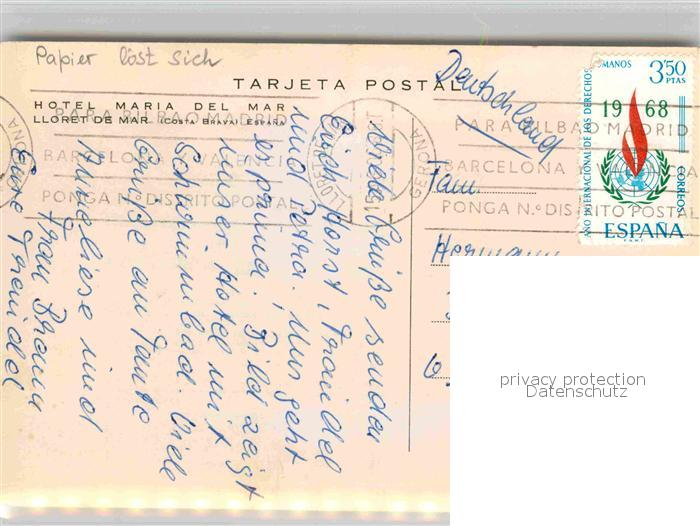 Papier löst sich
TARJETA POSTAL
HOTEL MARIA DEL MAR
LLORET DE MAR (COSTA BRAVA) ESPAÑA
Deutschland
AÑO INTERNACIONAL DE LOS DERECHOS
MANOS
3,50
PTAS
1968
CORREOS
ESPAÑA
F.N.M.T.
PARA BILBAO MADRID
BARCELONA Y VALENCIA
PONGA N.º DISTRITO POSTAL
GERONA
PARA BILBAO MADRID
BARCELONA
PONGA N.º DISTRITO POSTAL
Fam.
Hermann
Viele Grüße senden
Euch Horst, Traudel
und Petra. Uns geht
es prima. Bild zeigt
unser Hotel mit
Schwimmbad. Viele
Grüße an Tante
Anneliese und
Frau Braun
Eure Traudel
privacy protection
Datenschutz